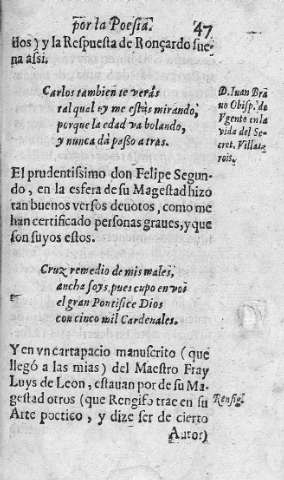 por la Poesia. 47
ños) y la Respuesta de Ronçardo sue-
na assi.
Carlos tambien te verás
tal qual oy me estás mirando,
porque la edad va bolando,
y nunca dà passo atras.
D. Iuan Bra
uo Obisp. de
Vgento en la
vida del Se-
cret. Villa
rois.
El prudentissimo don Felipe Segun-
do, en la esfera de su Magestad hizo
tan buenos versos deuotos, como me
han certificado personas graues, y que
son suyos estos.
Cruz remedio de mis males,
ancha soys, pues cupo en vos
el gran Pontifice Dios
con cinco mil Cardenales.
Y en vn cartapacio manuscrito (que
llegó a las mias) del Maestro Fray
Luys de Leon, estauan por de su Ma-
gestad otros (que Rengifo trae en su
Rengif.
Arte poetico, y dize ser de cierto
Autor)